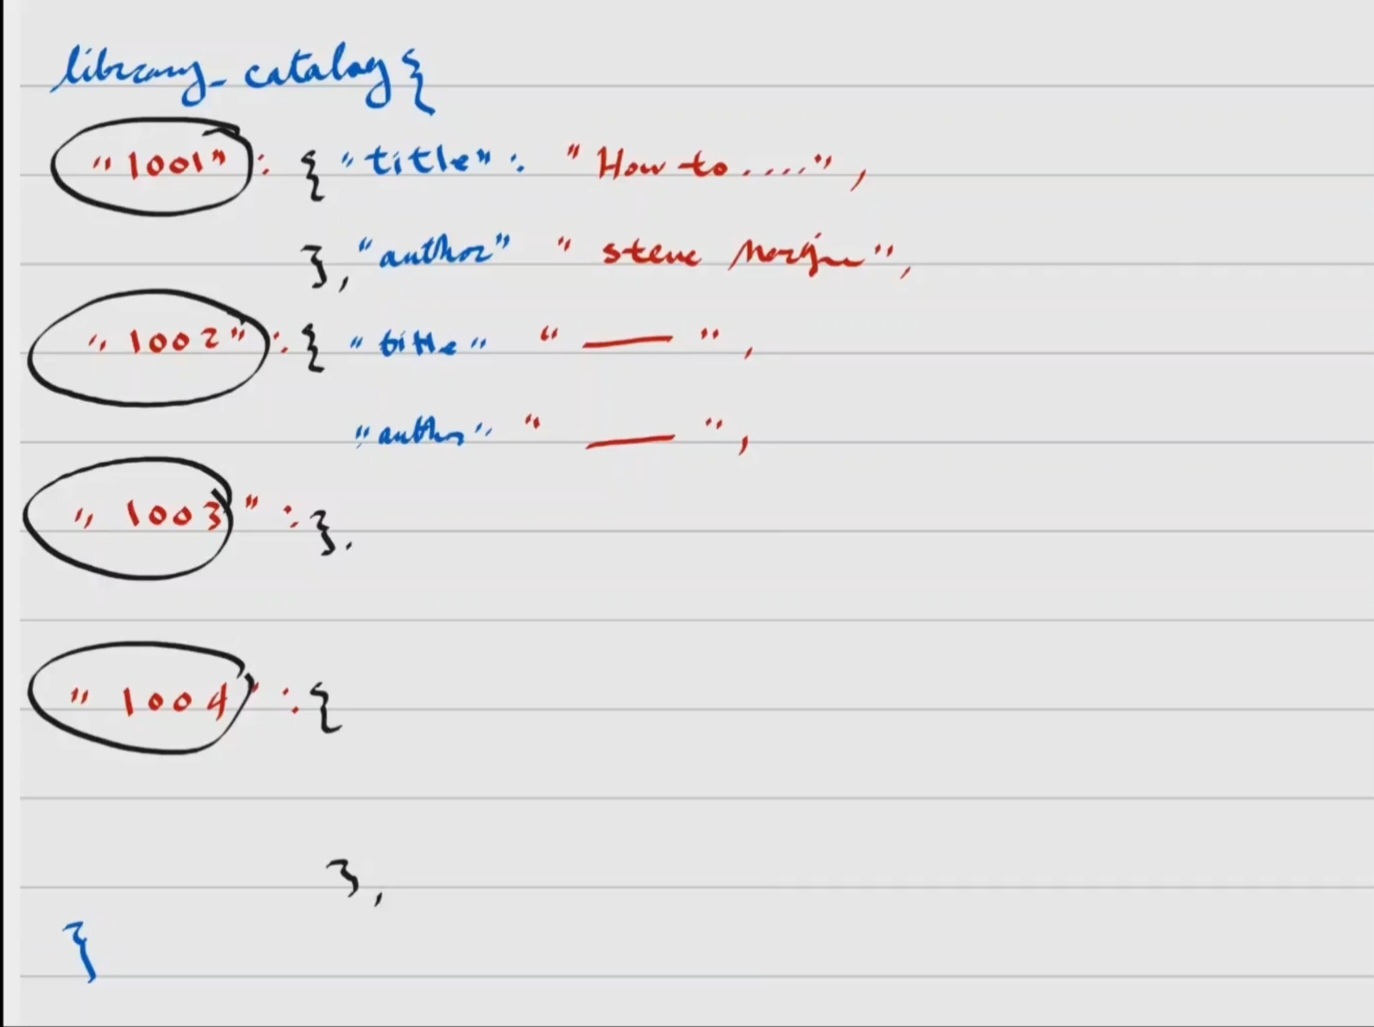 library_catalog{
"1001": { "title": "How to....",
},"author" " steve
"1002": { "title" " — ",
"author" " — ",
"1003": }.
"1004": {
},
}